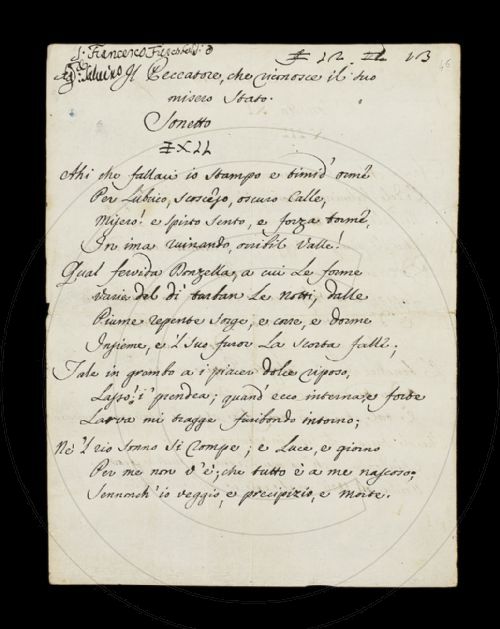 Il Peccatore, che riconosce il suo
misero Stato.
Sonetto
Ahi che fallaci io stampo e timid' orme
Per Lubrico, scosceso, oscuro Calle,
Misero! e spinto sento, e forza torme,
In ima ruinando, orribil Valle!
Qual fervida Donzella, a cui Le forme
Varie del dì turban Le notti, dalle
Piume repente sorge, e corre, e dorme
Insieme, e 'l suo furor La scorta falle;
Tale in grembo a i piacer dolce riposo,
Lasso! i' prendea; quand' ecco interna, e forte
Larva mi tragge furibondo intorno;
Nè 'l rio sonno si rompe; e Luce, e giorno
Per me non v'è; che tutto è a me nascoso;
Sennonch' io veggio, e precipizio, e morte.